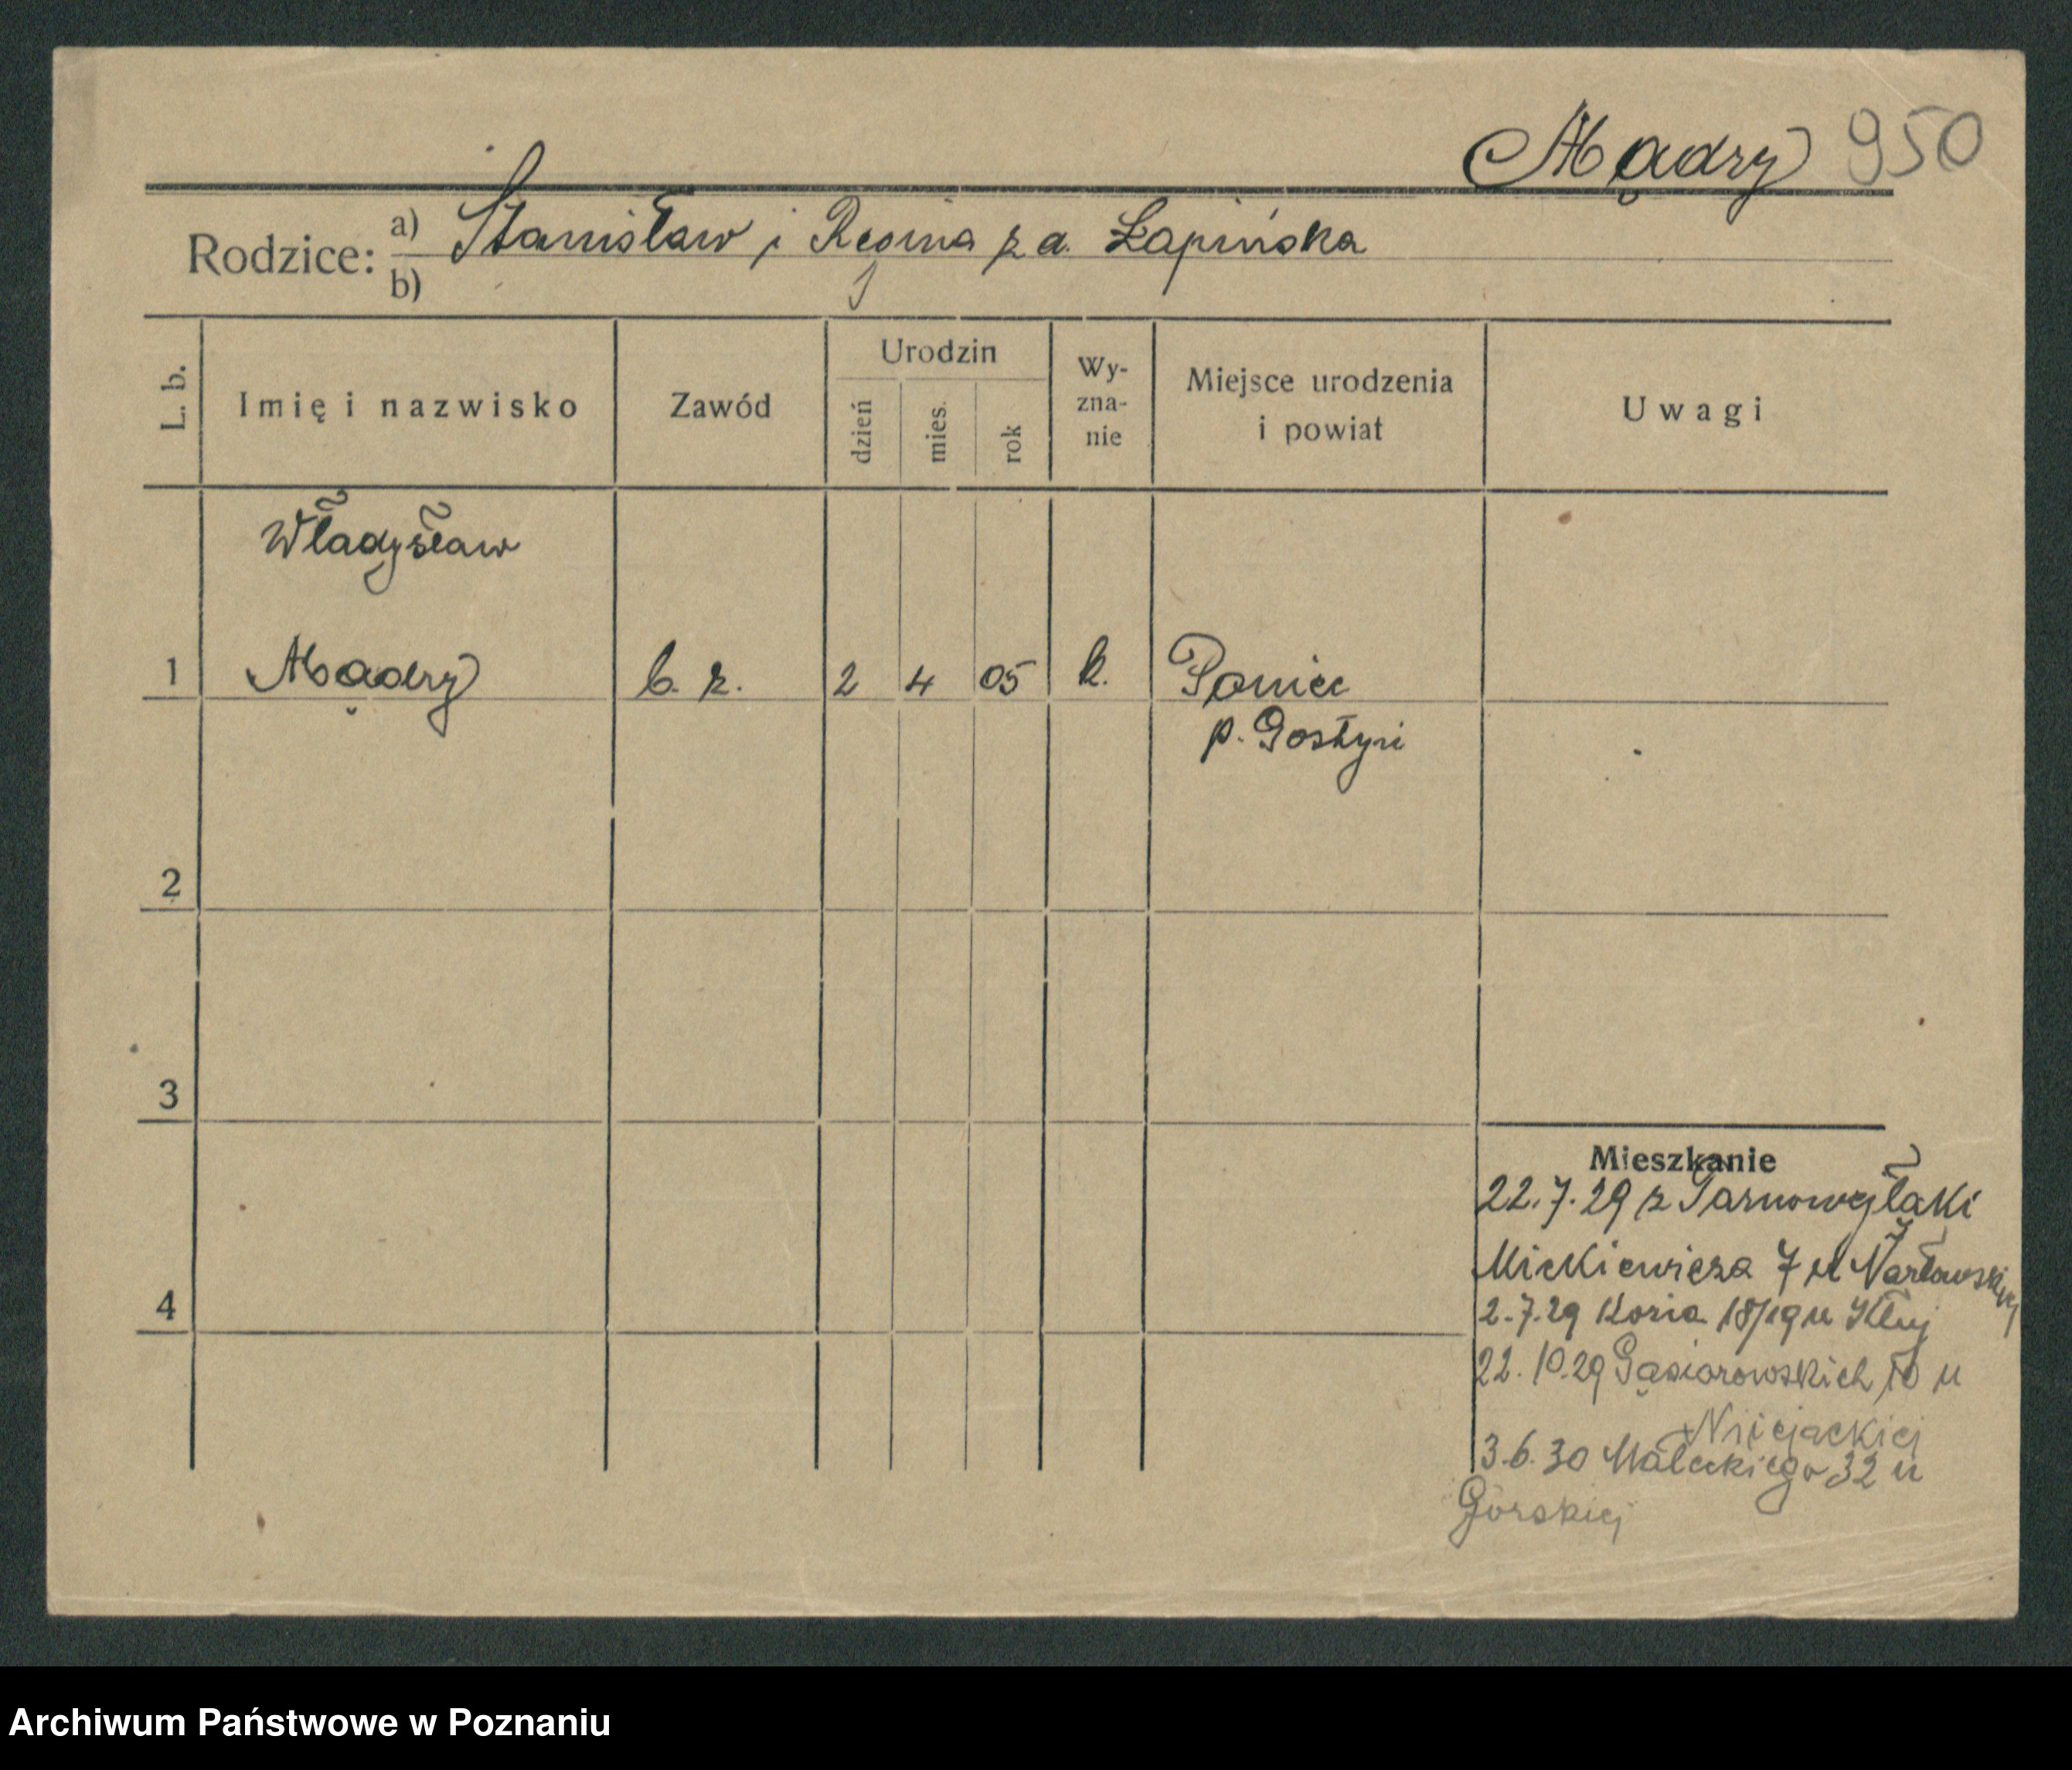 Mądry 950
Rodzice: a) Stanisław i Regina z d. Łapińska
b)
L. b.
Imię i nazwisko
Zawód
Urodzin
dzień
mies.
rok
Wy-
zna-
nie
Miejsce urodzenia
i powiat
Uwagi
Władysław
1 Mądry b. z. 2 4 05 k. Poniec
p. Gostyń
2
3
4
Mieszkanie
22.7.29 z
Mickiewicza 7 u
2.7.29 18/19 u
22.10.29 Gąsiorowskich 10 u
3.6.30 Małeckiego 32 u
Górskiej
Archiwum Państwowe w Poznaniu